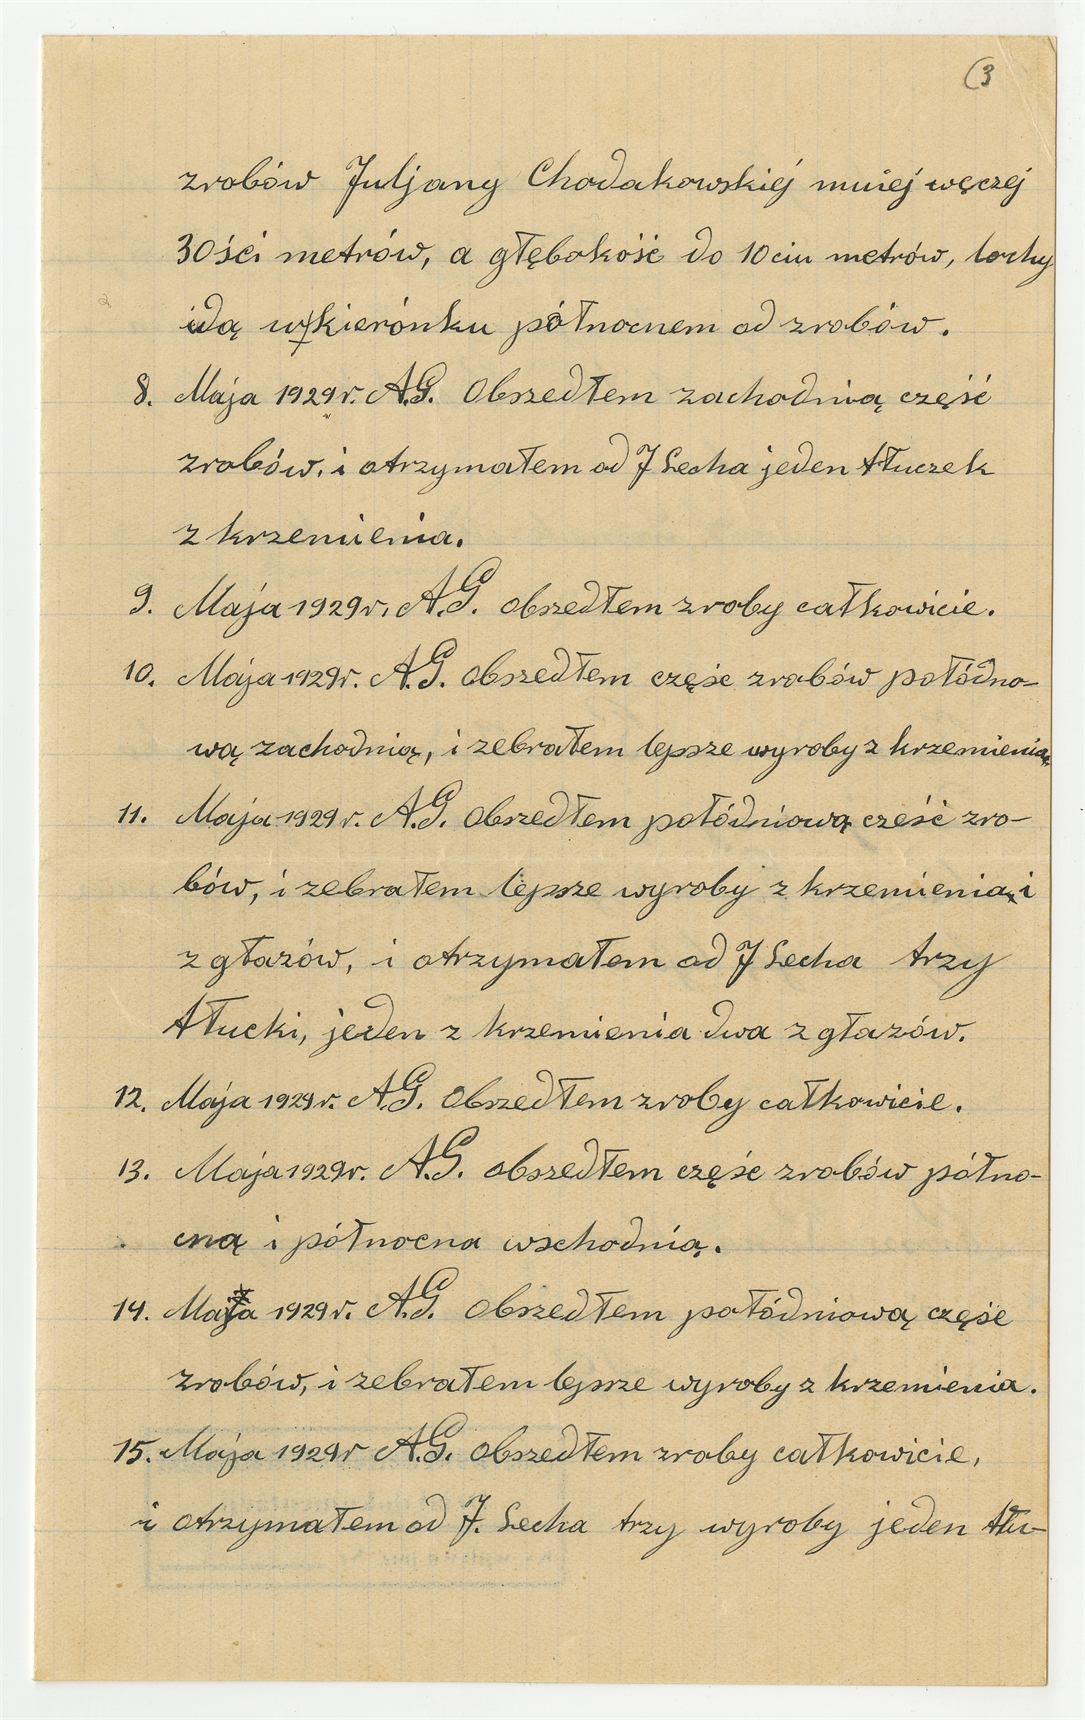 (3
zrobów Juljany Chodakowskiéj mniéj węczéj
30ści metrów, a głębokość do 10ciu metrów, lochy
idą w kierónku północnem od zrobów.
8. Maja 1929r. A.G. Obszedłem zachodnią część
zrobów, i otrzymałem od J Lecha jeden tłuczek
z krzemienia.
9. Maja 1929r. A.G. obszedłem zroby całkowicie.
10. Maja 1929r. A.G. obszedłem częśc zrobów połódno-
wą zachodnią, i zebrałem lepsze wyroby z krzemienia,
11. Maja 1929r. A.G. Obszedłem połódniową cześć zro-
bów, i zebrałem lepsze wyroby z krzemienia, i
z głazów, i otrzymałem od J Lecha trzy
tłucki, jeden z krzemienia dwa z głazów.
12. Maja 1929r. A.G. Obszedłem zroby całkowicie.
13. Maja 1929r. A.G. obszedłem częśc zrobów półno-
cną i północna wschodnią.
14. Maja 1929r. A.G. Obszedłem połódniową częśc
zrobów, i zebrałem lepsze wyroby z krzemienia.
15. Maja 1929r A.G. obszedłem zroby całkowicie,
i otrzymałem od J. Lecha trzy wyroby jeden tłu-